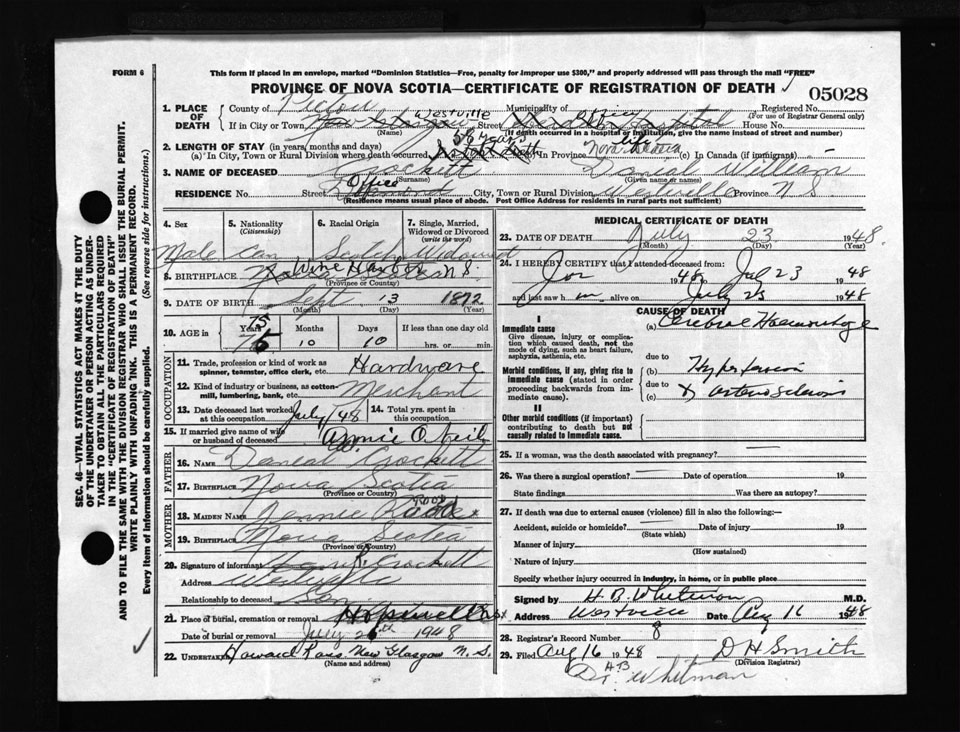 FORM 6
This form if placed in an envelope, marked "Dominion Statistics—Free, penalty for improper use $300," and properly addressed will pass through the mail "FREE"
PROVINCE OF NOVA SCOTIA—CERTIFICATE OF REGISTRATION OF DEATH
05028
SEC. 46—VITAL STATISTICS ACT MAKES IT THE DUTY
OF THE UNDERTAKER OR PERSON ACTING AS UNDER-
TAKER TO OBTAIN ALL THE PARTICULARS REQUIRED
IN THE "CERTIFICATE OF REGISTRATION OF DEATH"
AND TO FILE THE SAME WITH THE DIVISION REGISTRAR WHO SHALL ISSUE THE BURIAL PERMIT.
WRITE PLAINLY WITH UNFADING INK. THIS IS A PERMANENT RECORD.
Every item of information should be carefully supplied. (See reverse side for instructions.)
1. PLACE OF DEATH
County of Pictou Municipality of Registered No.
(For use of Registrar General only)
If in City or Town New Glasgow Westville Street Office House No.
(Name) (If death occurred in a hospital or institution, give the name instead of street and number)
2. LENGTH OF STAY (in years, months and days)
(a) In City, Town or Rural Division where death occurred 50 years (b) In Province Nova Scotia life (c) In Canada (if immigrant)
3. NAME OF DECEASED Crockett Danial William
(Surname) (Given name or names)
RESIDENCE Street Office City, Town or Rural Division Westville Province N.S.
(Residence means usual place of abode. Post Office Address for residents in rural parts not sufficient)
4. Sex Male
5. Nationality (Citizenship) Can
6. Racial Origin Scotch
7. Single, Married, Widowed or Divorced (write the word) Widowed
8. BIRTHPLACE Wine Harbor N.S.
(Province or Country)
9. DATE OF BIRTH Sept 13 1872
(Month) (Day) (Year)
10. AGE in 75 Years 10 Months 10 Days If less than one day old hrs. or min.
OCCUPATION
11. Trade, profession or kind of work as spinner, teamster, office clerk, etc. Hardware
12. Kind of industry or business, as cotton-mill, lumbering, bank, etc. Merchant
13. Date deceased last worked at this occupation July/48 14. Total yrs. spent in this occupation
15. If married give name of wife or husband of deceased Annie O'Neil
FATHER
16. NAME Daneal Crockett
17. BIRTHPLACE Nova Scotia
(Province or Country)
MOTHER
18. MAIDEN NAME Jennie
19. BIRTHPLACE Nova Scotia
(Province or Country)
20. Signature of informant R. Crockett
Address Westville
Relationship to deceased Son
21. Place of burial, cremation or removal Hopewell
Date of burial or removal July 26th 1948
22. UNDERTAKER Howard Ross New Glasgow N.S.
(Name and address)
MEDICAL CERTIFICATE OF DEATH
23. DATE OF DEATH July 23 1948.
(Month) (Day) (Year)
24. I HEREBY CERTIFY that I attended deceased from:
Jan 1948 to July 23 1948
and last saw him alive on July 23 1948
CAUSE OF DEATH
I
Immediate cause
Give disease, injury or complication which caused death, not the mode of dying, such as heart failure, asphyxia, asthenia, etc.
(a) Cerebral Haemorrhage
due to
Morbid conditions, if any, giving rise to immediate cause (stated in order proceeding backwards from immediate cause)
Hypertension
due to
(c) & arteriosclerosis
II
Other morbid conditions (if important) contributing to death but not causally related to immediate cause.
25. If a woman, was the death associated with pregnancy?
26. Was there a surgical operation? Date of operation 19
State findings Was there an autopsy?
27. If death was due to external causes (violence) fill in also the following:—
Accident, suicide or homicide? Date of injury 19
(State which)
Manner of injury
(How sustained)
Nature of injury
Specify whether injury occurred in industry, in home, or in public place
Signed by H. B. Whitman M.D.
Address Westville Date Aug 16 1948
28. Registrar's Record Number 8
29. Filed Aug 16 1948 D H Smith
(Division Registrar)
Dr. H B Whitman